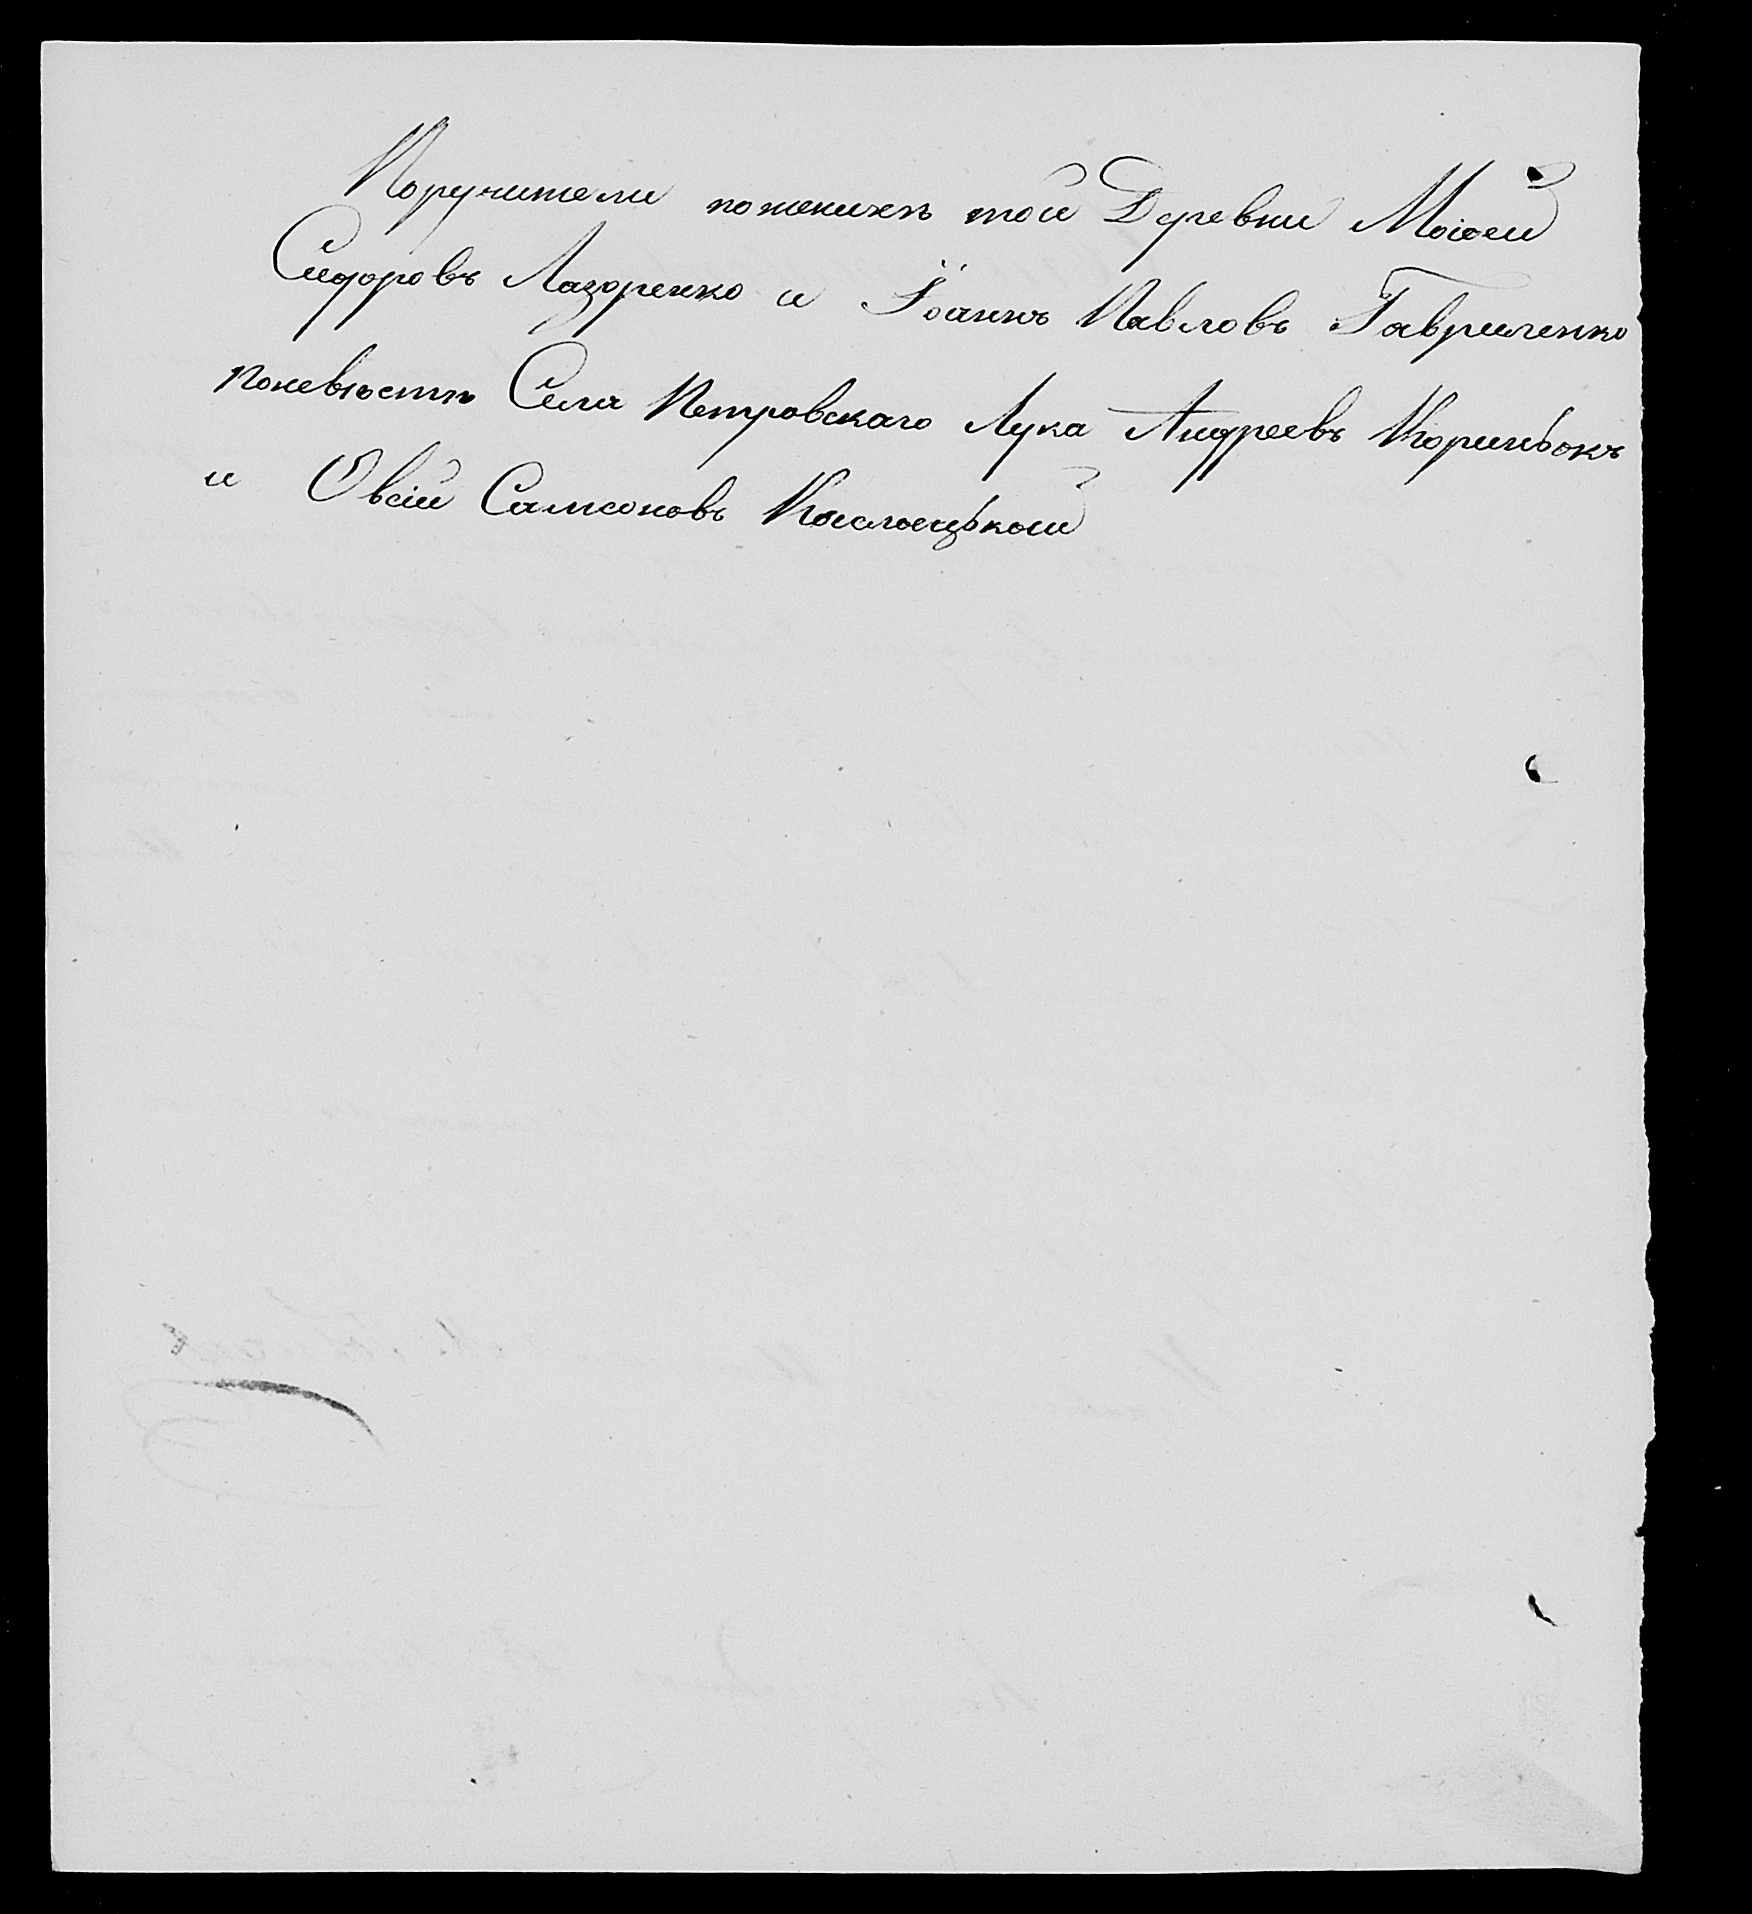 Поручители пожених той Деревни Моїсей
Сидоровъ Лазоренко и Їоаннъ Павловъ Гавриленко
поневѣстѣ Села Петровскаго Лука Андреевъ Кориньокъ
и Овсій Самсоновъ